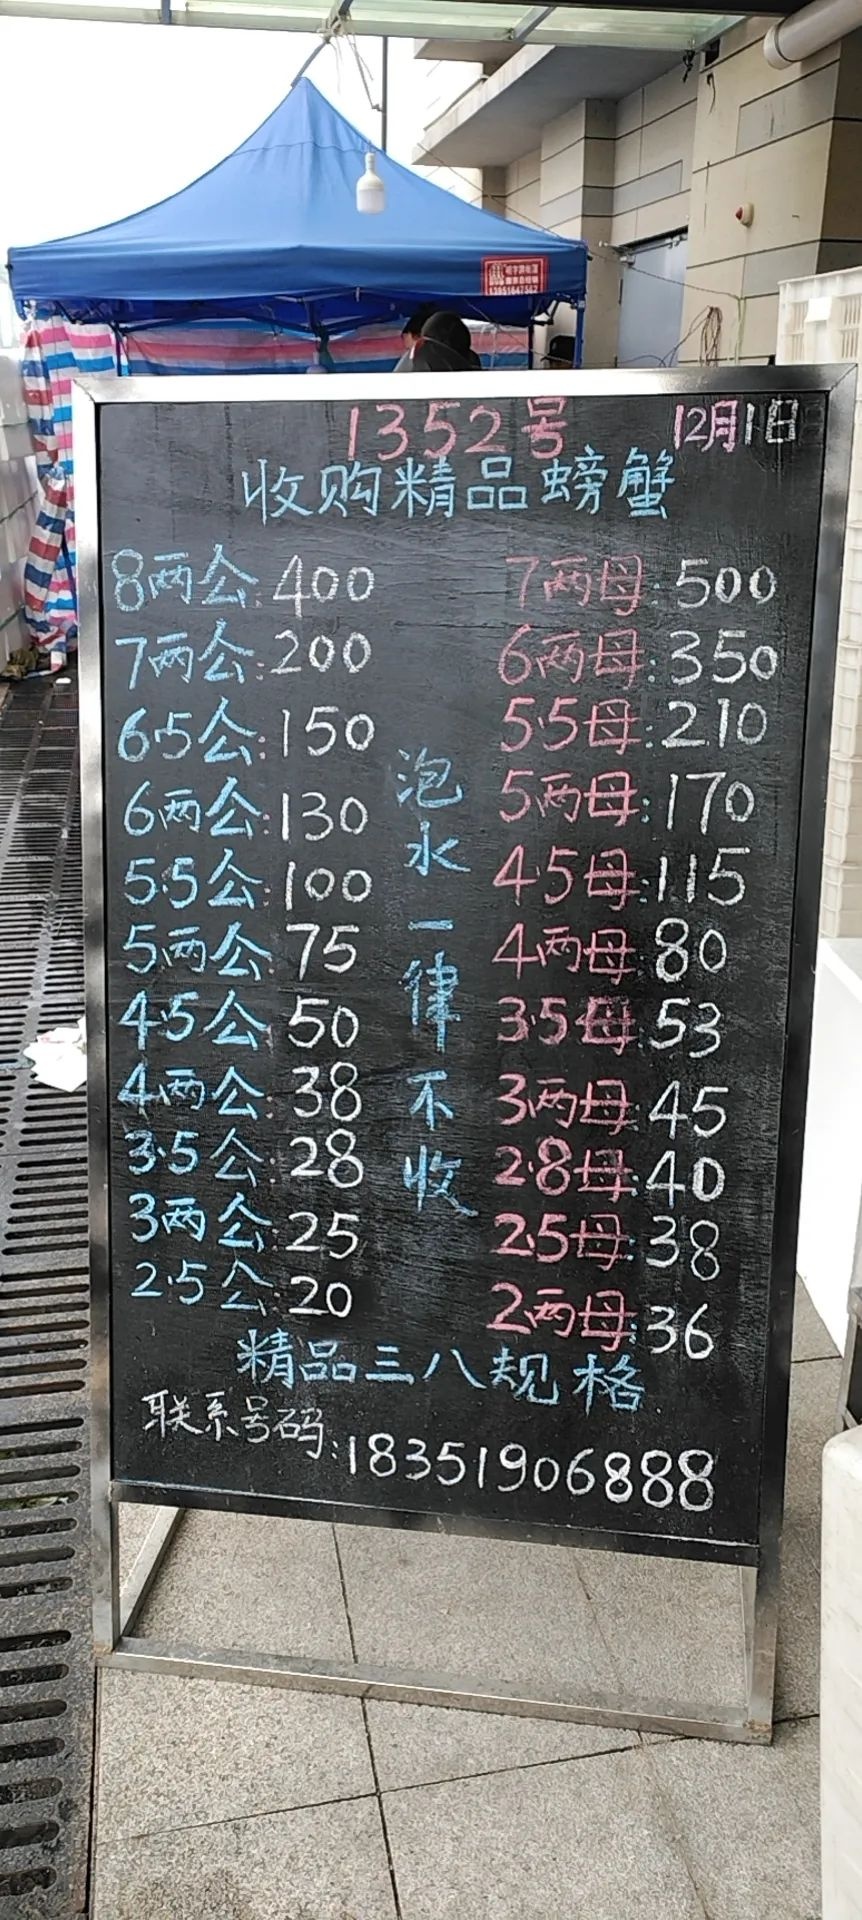 1352号 12月1日
收购精品螃蟹
8两公:400
7两公:200
6.5公:150
6两公:130
5.5公:100
5两公:75
4.5公:50
4两公:38
3.5公:28
3两公:25
2.5公:20
泡水一律不收
7两母:500
6两母:350
5.5母:210
5两母:170
4.5母:115
4两母:80
3.5母:53
3两母:45
2.8母:40
2.5母:38
2两母:36
精品三八规格
联系号码:18351906888